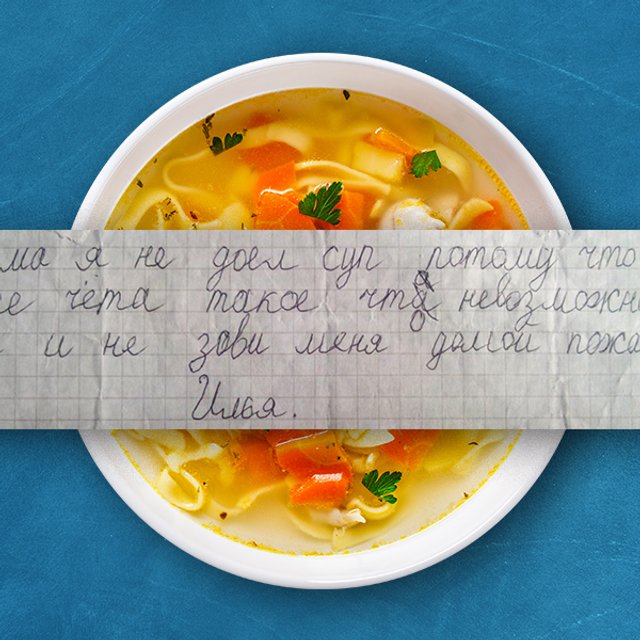 ма я не доел суп потому что
е чета такое что невозможн
и не зови меня домой пожа
Илья.